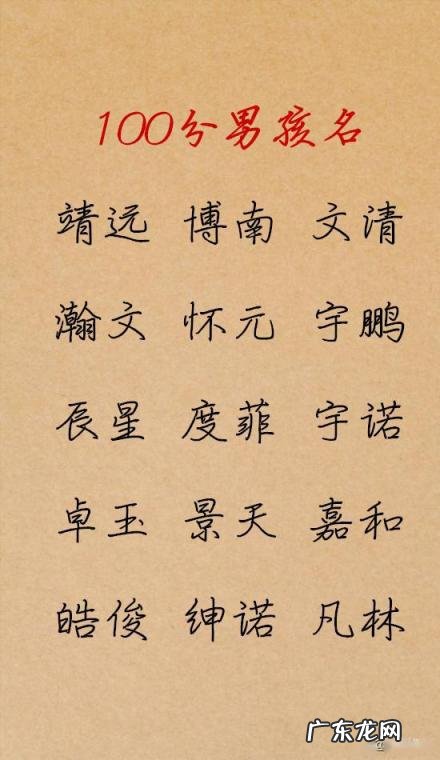 100分男孩名
靖远 博南 文清
瀚文 怀元 宇鹏
辰星 度菲 宇诺
卓玉 景天 嘉和
皓俊 绅诺 凡林
广东龙网